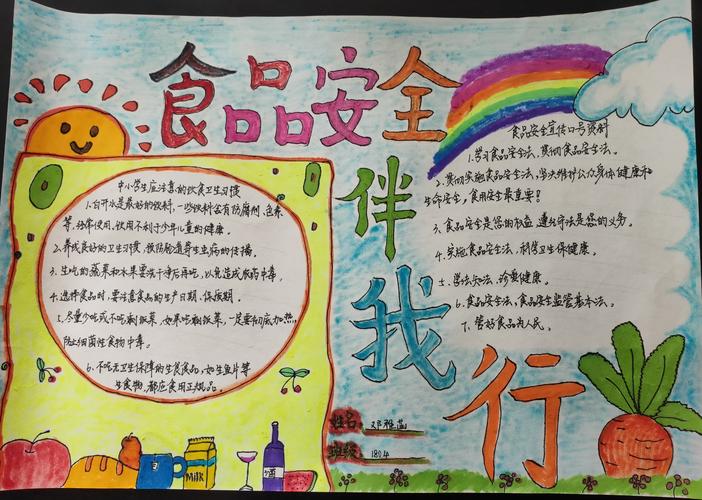 食品安全
伴我行
中小学生应注意的饮食卫生习惯
1.白开水是最好的饮料，一些饮料含有防腐剂、色素
等，经常饮用，饮用不利于少年儿童的健康。
2.养成良好的卫生习惯，预防肠道寄生虫病的传播。
3.生吃的蔬菜和水果要洗干净后再吃，以免造成农药中毒。
4.选择食品时，要注意食品的生产日期、保质期。
5.尽量少吃或不吃剩饭菜，如果吃剩饭菜，一定要彻底加热，
防止细菌性食物中毒。
6.不吃无卫生保障的生食食品，如生鱼片等
生食物，都应食用正规品。
食品安全宣传口号资料
1.学习食品安全法，贯彻食品安全法。
2.贯彻实施食品安全法，坚决维护公众身体健康和
生命安全，食用安全最重要！
3.食品安全是您的权益，遵纪守法是您的义务。
4.实施食品安全法，科学卫生保健康。
5.学法知法，珍爱健康。
6.食品安全法，食品安全监管基本法。
7.管好食品为人民。
Milk
酒
姓名：邓雅菡
班级：1804